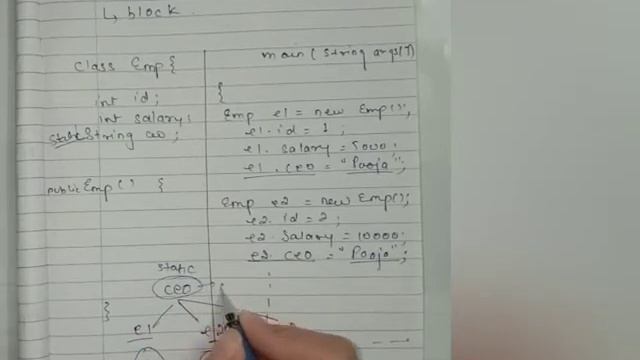 ↳ block
class Emp {
int id;
int salary;
static String ceo;
public Emp() {
}
main( String args[])
{
Emp e1 = new Emp();
e1.id = 1;
e1.salary = 5000;
e1.ceo = "Pooja";
Emp e2 = new Emp();
e2.id = 2;
e2.salary = 10000;
e2.ceo = "Pooja";
static
ceo
e1 e2